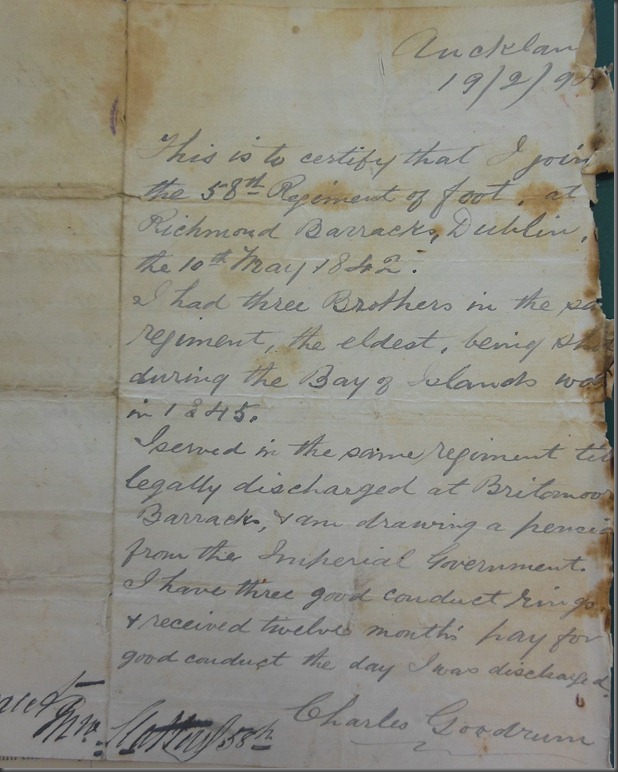 Aucklan
19/2/9
This is to certify that I join
the 58th Regiment of foot, at
Richmond Barracks, Dublin,
the 10th May 1842.
I had three Brothers in the sa
regiment, the eldest, being sho
during the Bay of Islands wa
in 1845.
I served in the same regiment til
legally discharged at Britomar
Barracks, & am drawing a pensio
from the Imperial Government.
I have three good conduct rings
& received twelve months pay for
good conduct the day I was discharged.
Charles Goodrum
58th